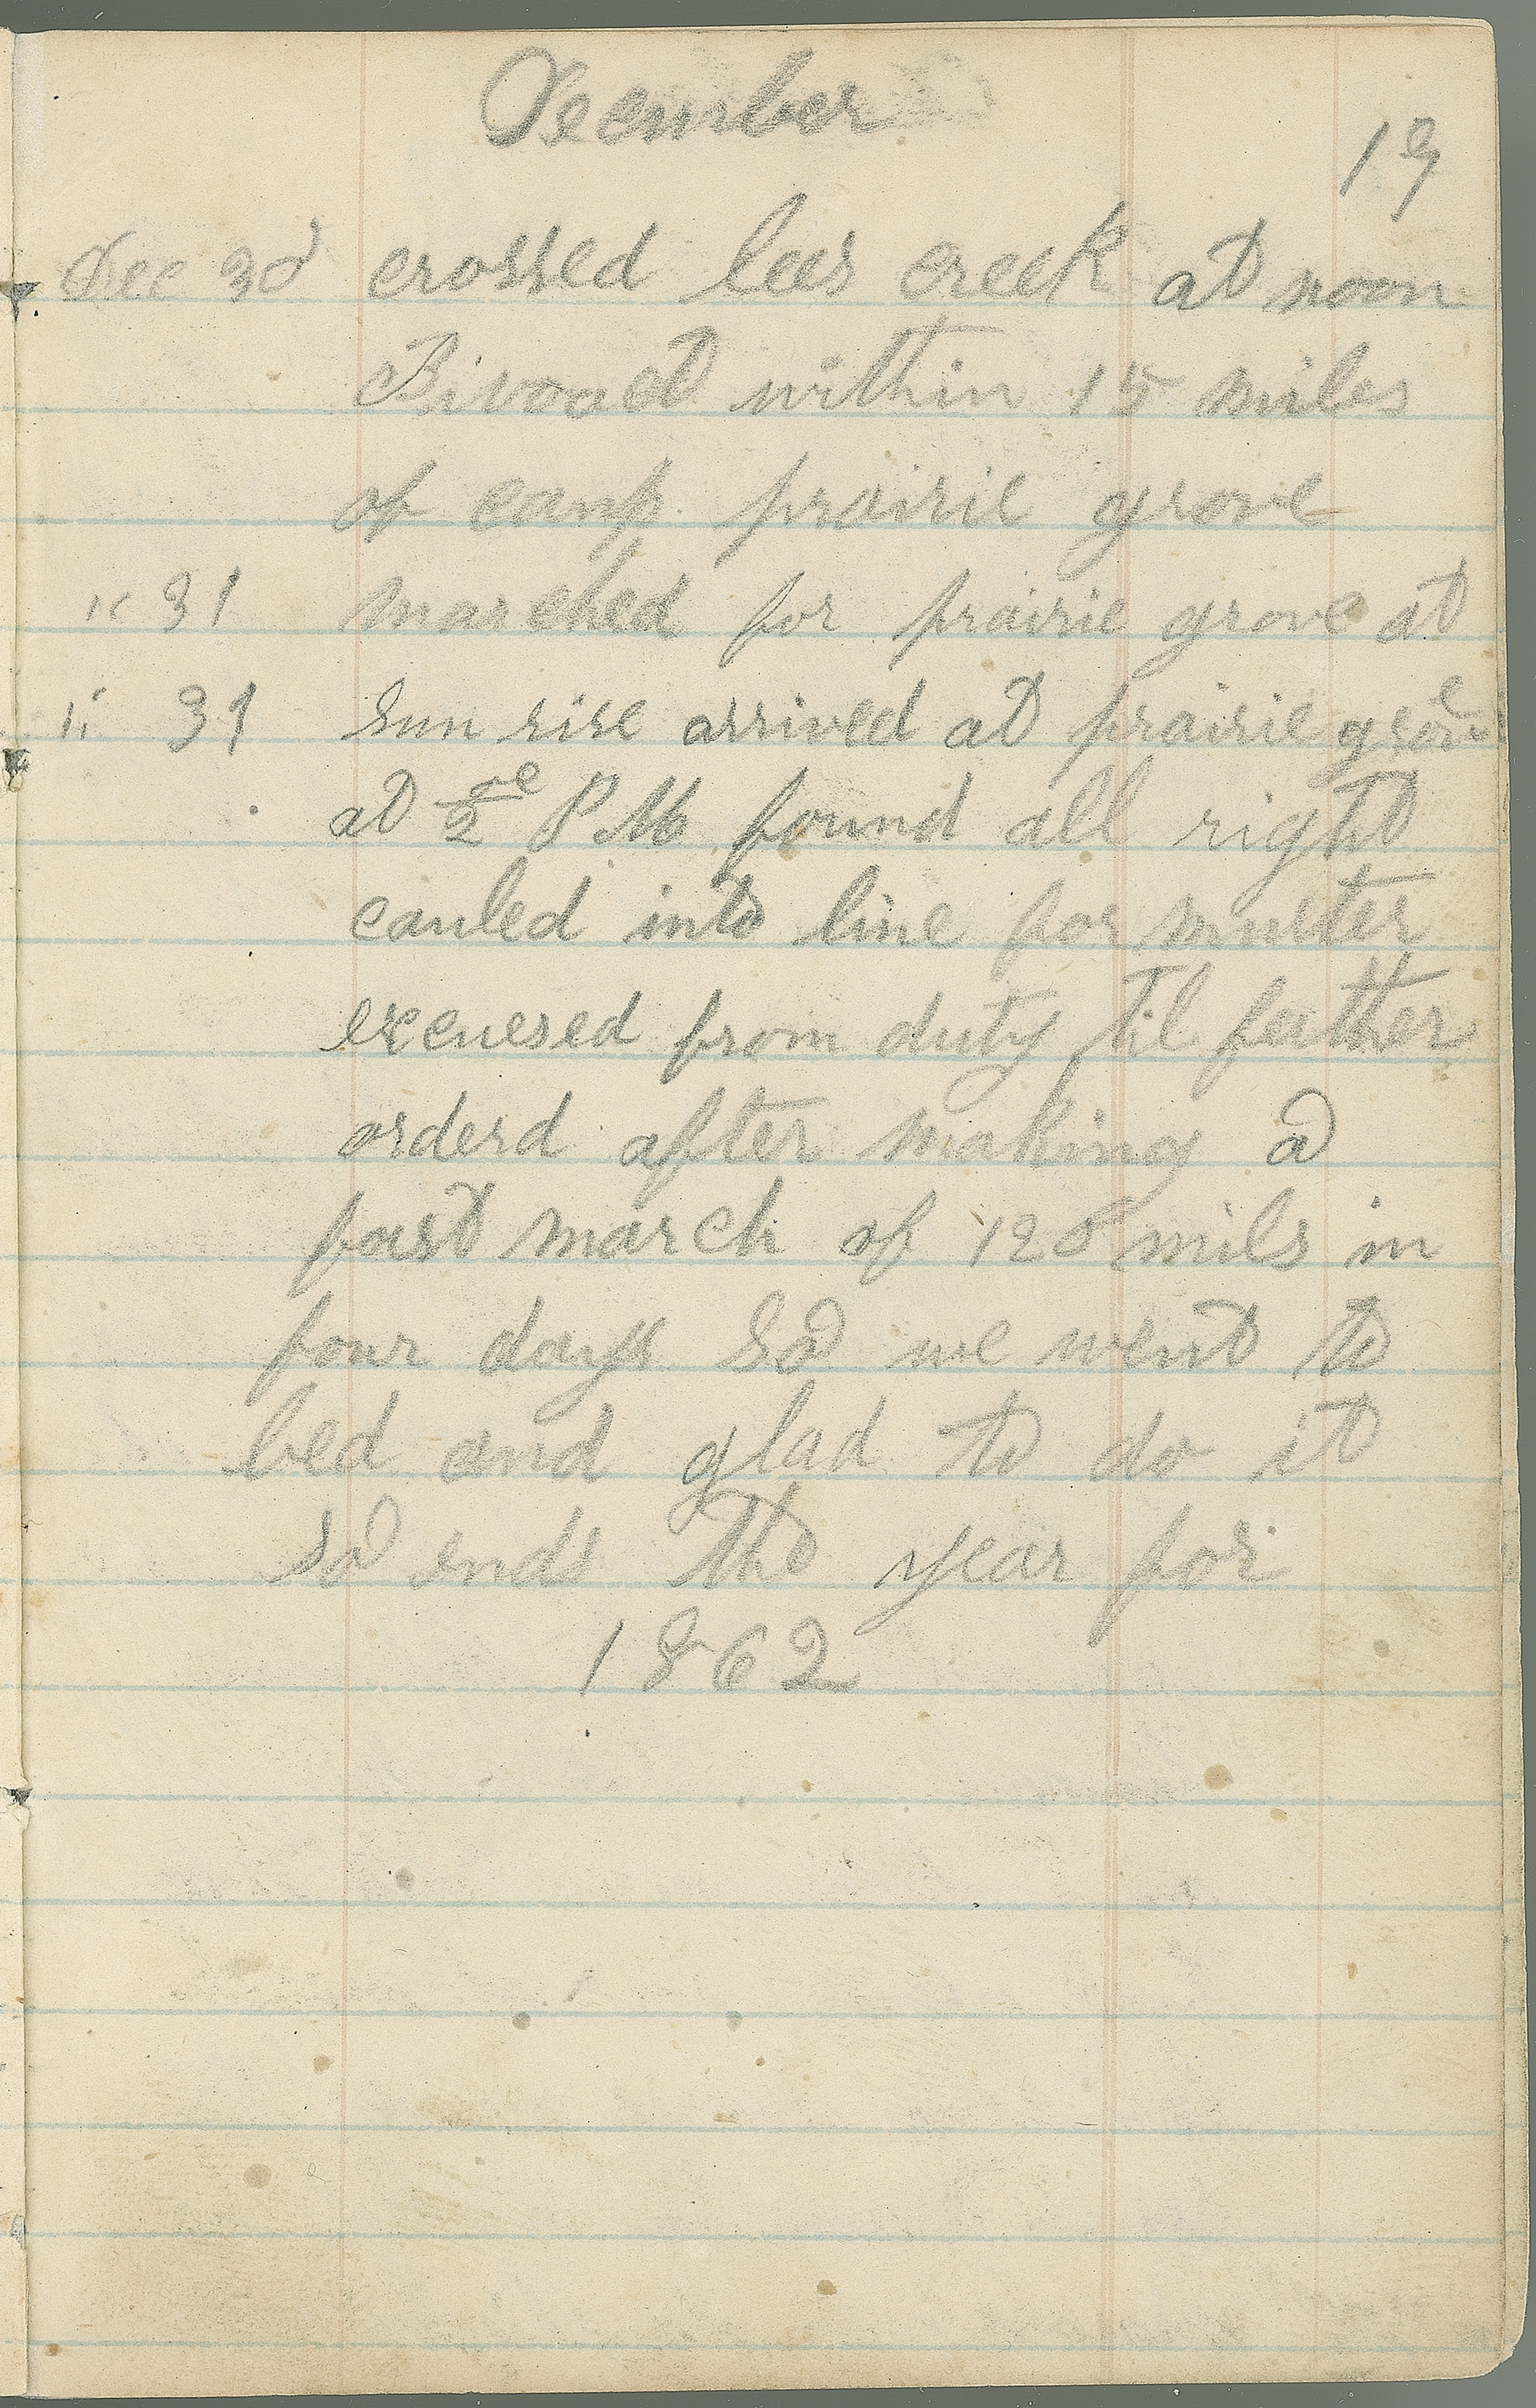 December
19
Dec 30 crossed lees creek at noon
Bivoact within 15 miles
of camp prairie grove
" 31 marched for prairie grove at
" 31 sun rise arrived at prairie grove
at 2 P M found all right
cauled into line for muster
excuesed from duty til ferther
orderd after making a
fast march of 128 mils in
four days So we went to
bed and glad to do it
so ends the year for
1862